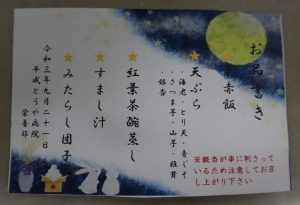 お品書き
★赤飯
★天ぷら
・海老・とり天・青じそ
・さつま芋・山芋・椎茸
・銀杏
★紅葉茶碗蒸し
★すまし汁
★みたらし団子
令和三年九月二十一日
平成とうや病院
栄養部
※銀杏が串に刺さって
いるため注意してお召
し上がり下さい